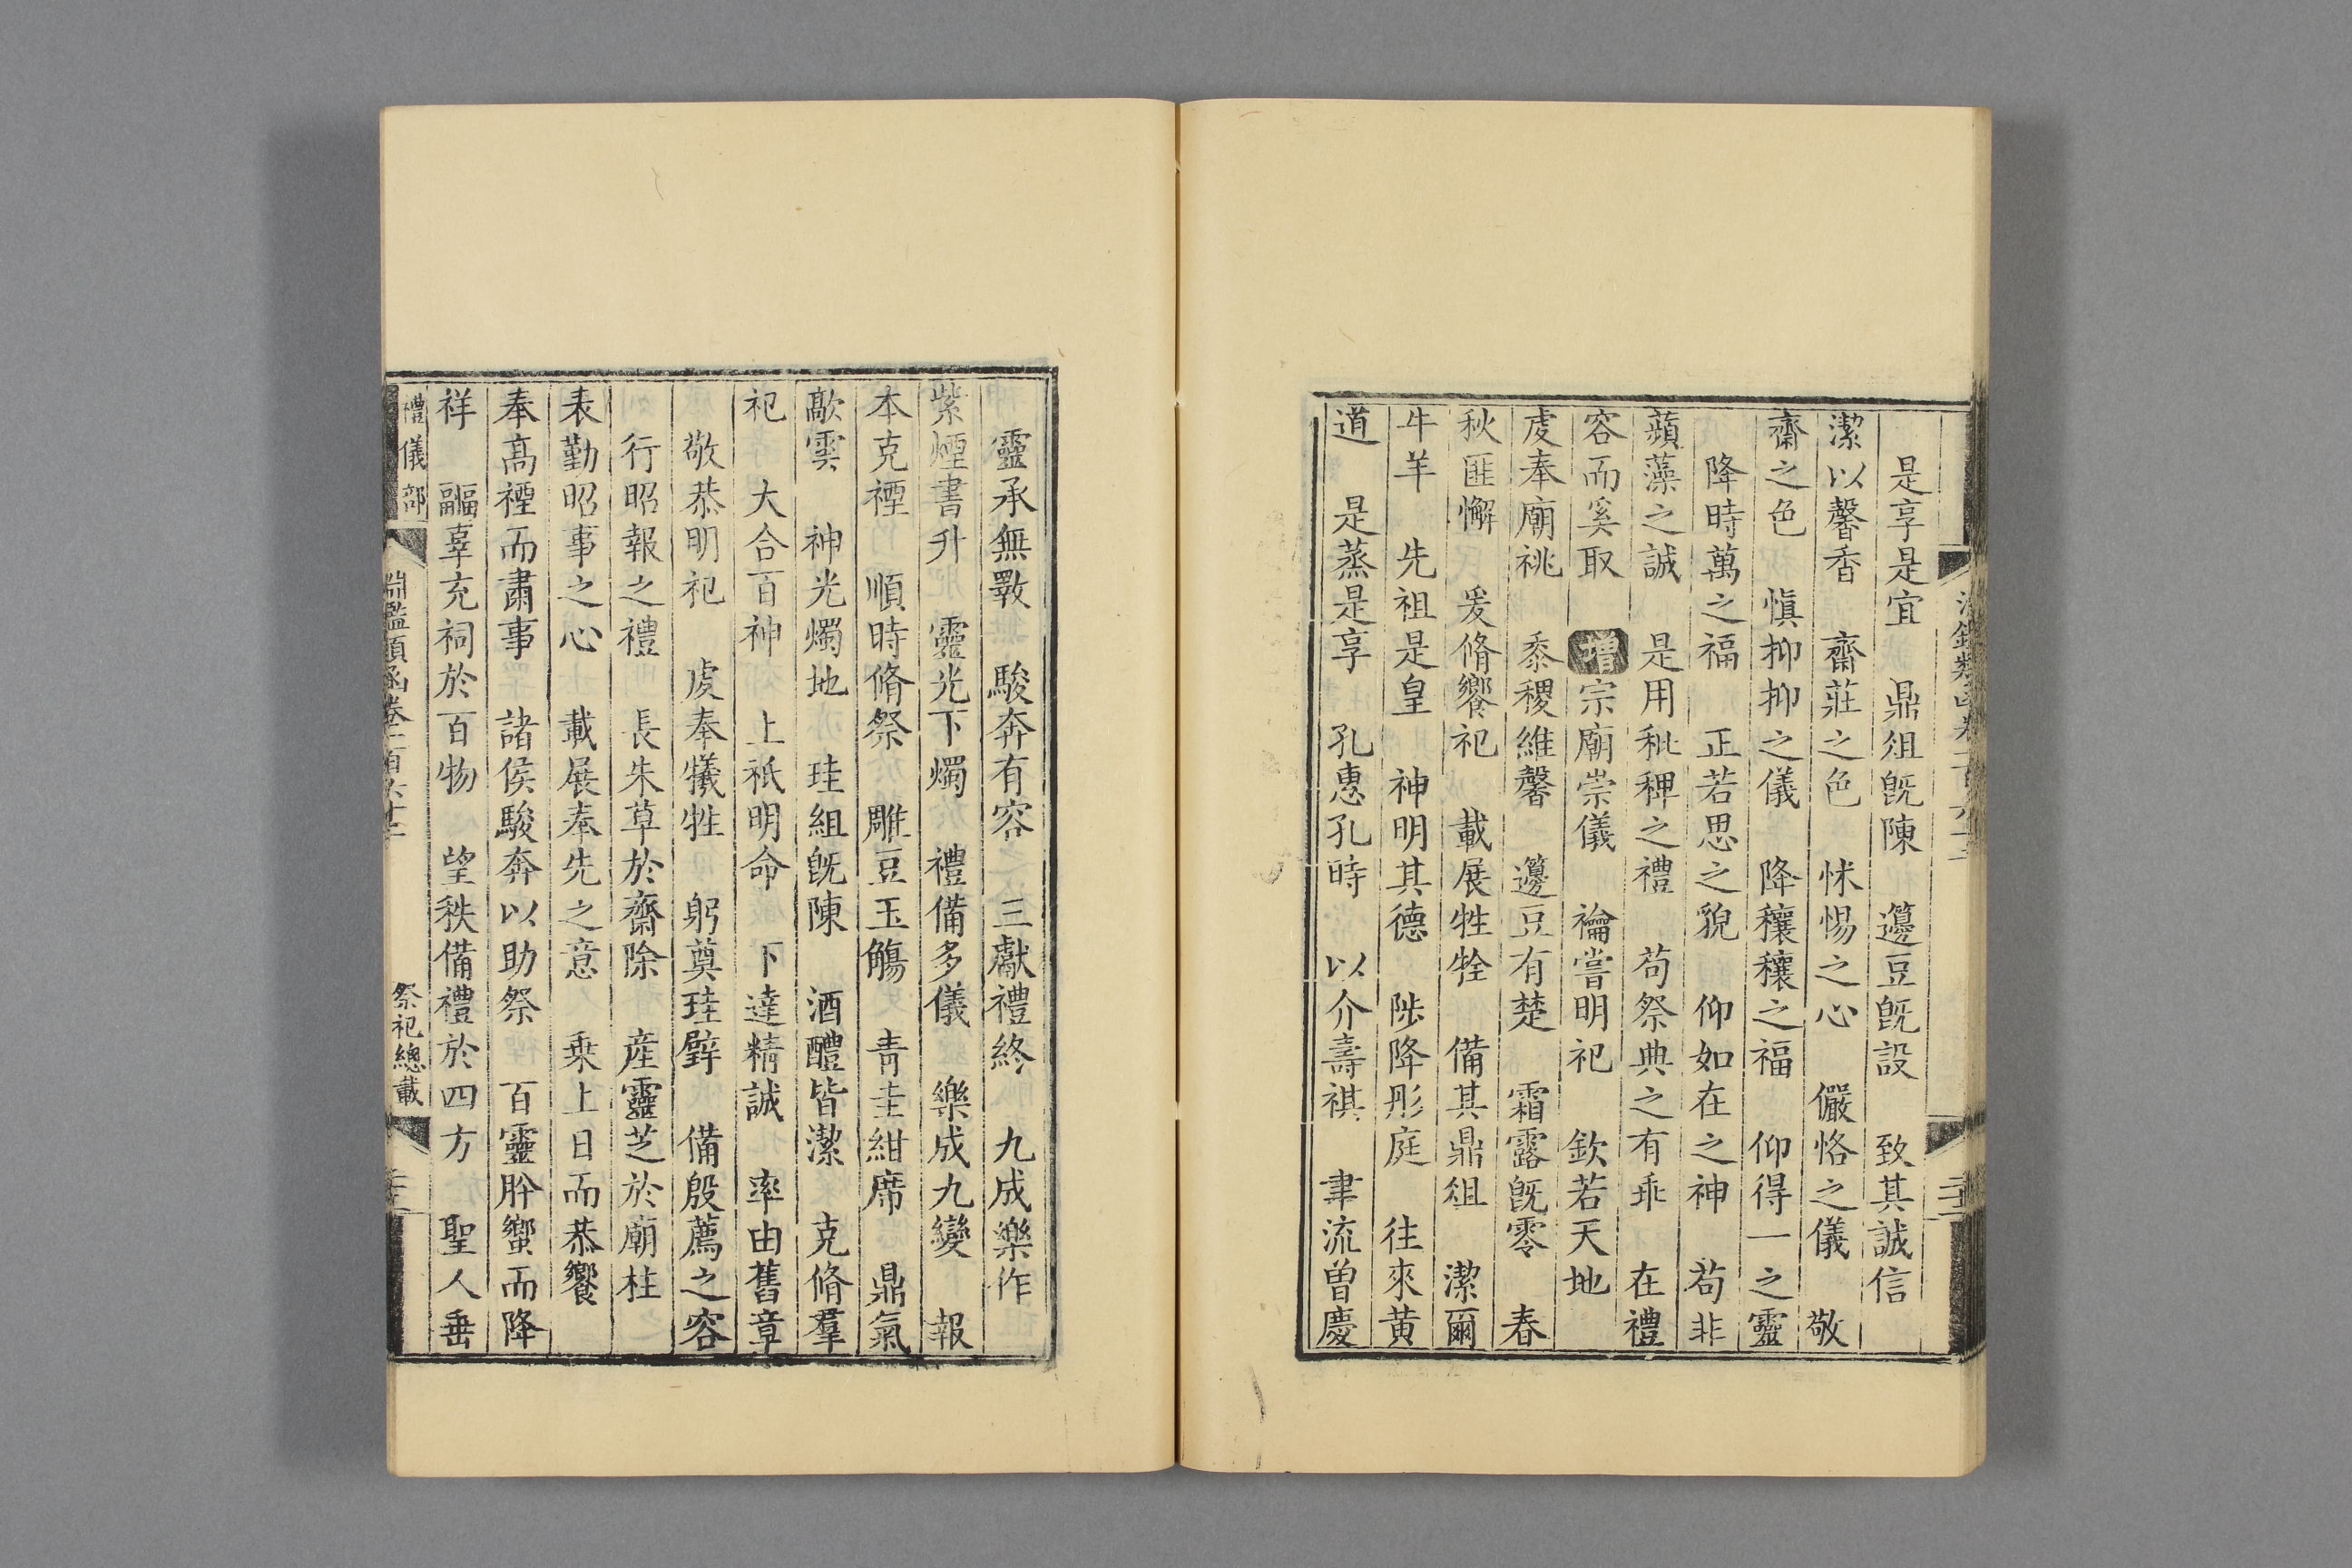 是享是宜　鼎俎旣陳　籩豆旣設　致其誠信
潔以馨香　齋莊之色　怵惕之心　儼恪之儀　敬
齋之色　愼抑抑之儀　降穰穰之福　仰得一之靈
降時萬之福　正若思之貌　仰如在之神　苟非
蘋藻之誠　是用秕稗之禮　苟祭典之有乖　在禮
容而奚取　增宗廟崇儀　禴嘗明祀　欽若天地
虔奉廟祧　黍稷維馨　籩豆有楚　霜露旣零　春
秋匪懈　爰脩饗祀　載展牲牷　備其鼎俎　潔爾
牛羊　先祖是皇　神明其德　陟降彤庭　往來黃
道　是蒸是享　孔惠孔時　以介壽祺　聿流曾慶
靈承無斁　駿奔有容　三獻禮終　九成樂作
紫煙書升　靈光下燭　禮備多儀　樂成九變　報
本克禋　順時脩祭　雕豆玉觴　青圭紺席　鼎氣
歊雲　神光燭地　珪組旣陳　酒醴皆潔　克脩羣
祀　大合百神　上祇明命　下達精誠　率由舊章
敬恭明祀　虔奉犧牲　躬奠珪璧　備殷薦之容
行昭報之禮　長朱草於齋除　產靈芝於廟柱
表勤昭事之心　載展奉先之意　乗上日而恭饗
奉高禋而肅事　諸侯駿奔以助祭　百靈肸蠁而降
祥　疈辜充祠於百物　望秩備禮於四方　聖人垂
禮儀部　淵鑑類函卷一百六十二　祭祀總載